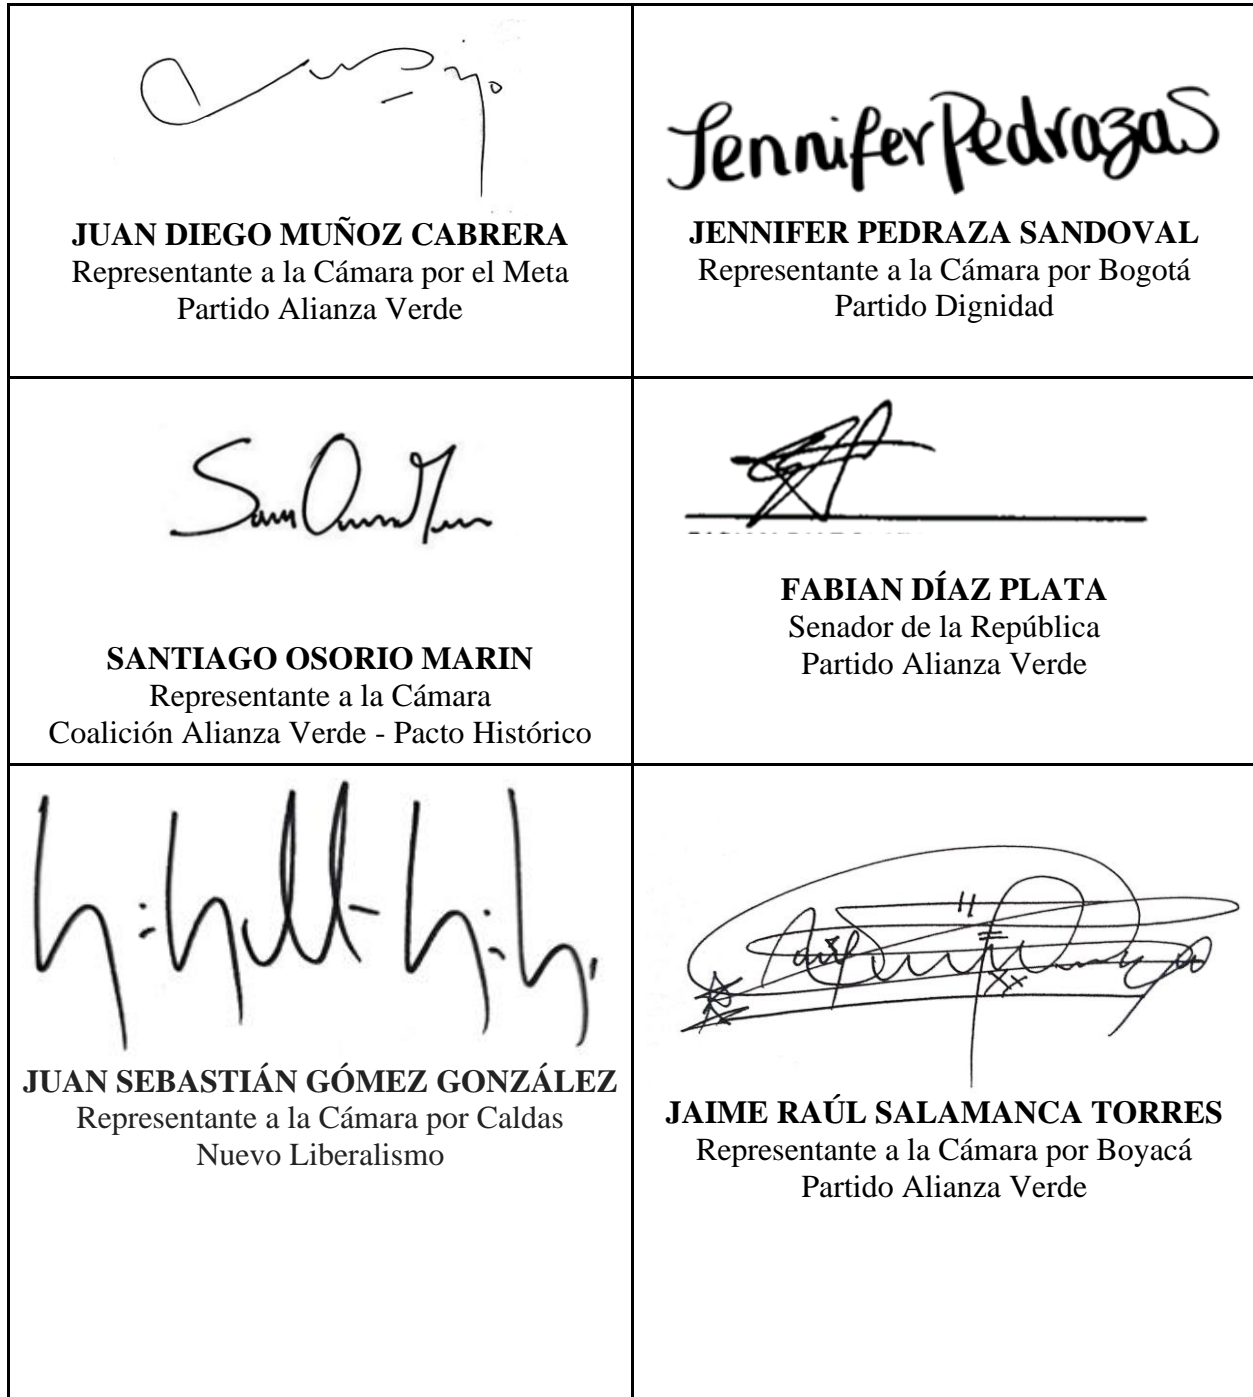 JUAN DIEGO MUÑOZ CABRERA
Representante a la Cámara por el Meta
Partido Alianza Verde
Jennifer PedrazaS
JENNIFER PEDRAZA SANDOVAL
Representante a la Cámara por Bogotá
Partido Dignidad
SANTIAGO OSORIO MARIN
Representante a la Cámara
Coalición Alianza Verde - Pacto Histórico
FABIAN DÍAZ PLATA
Senador de la República
Partido Alianza Verde
JUAN SEBASTIÁN GÓMEZ GONZÁLEZ
Representante a la Cámara por Caldas
Nuevo Liberalismo
JAIME RAÚL SALAMANCA TORRES
Representante a la Cámara por Boyacá
Partido Alianza Verde